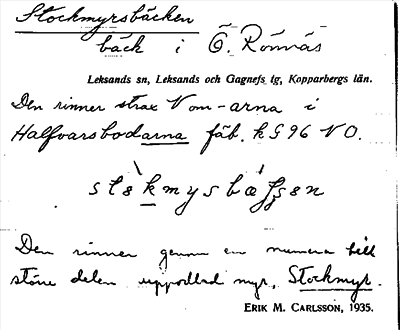 Stockmyrsbäcken
bäck i Ö. Rönnäs
Leksands sn, Leksands och Gagnefs tg, Kopparbergs län.
Den rinner strax V om -arna i
Halfvarsbodarna fäb. k G 96 NO.
Den rinner genom en numera till
större delen uppodlad myr, Stockmyr.
ERIK M. CARLSSON, 1935.